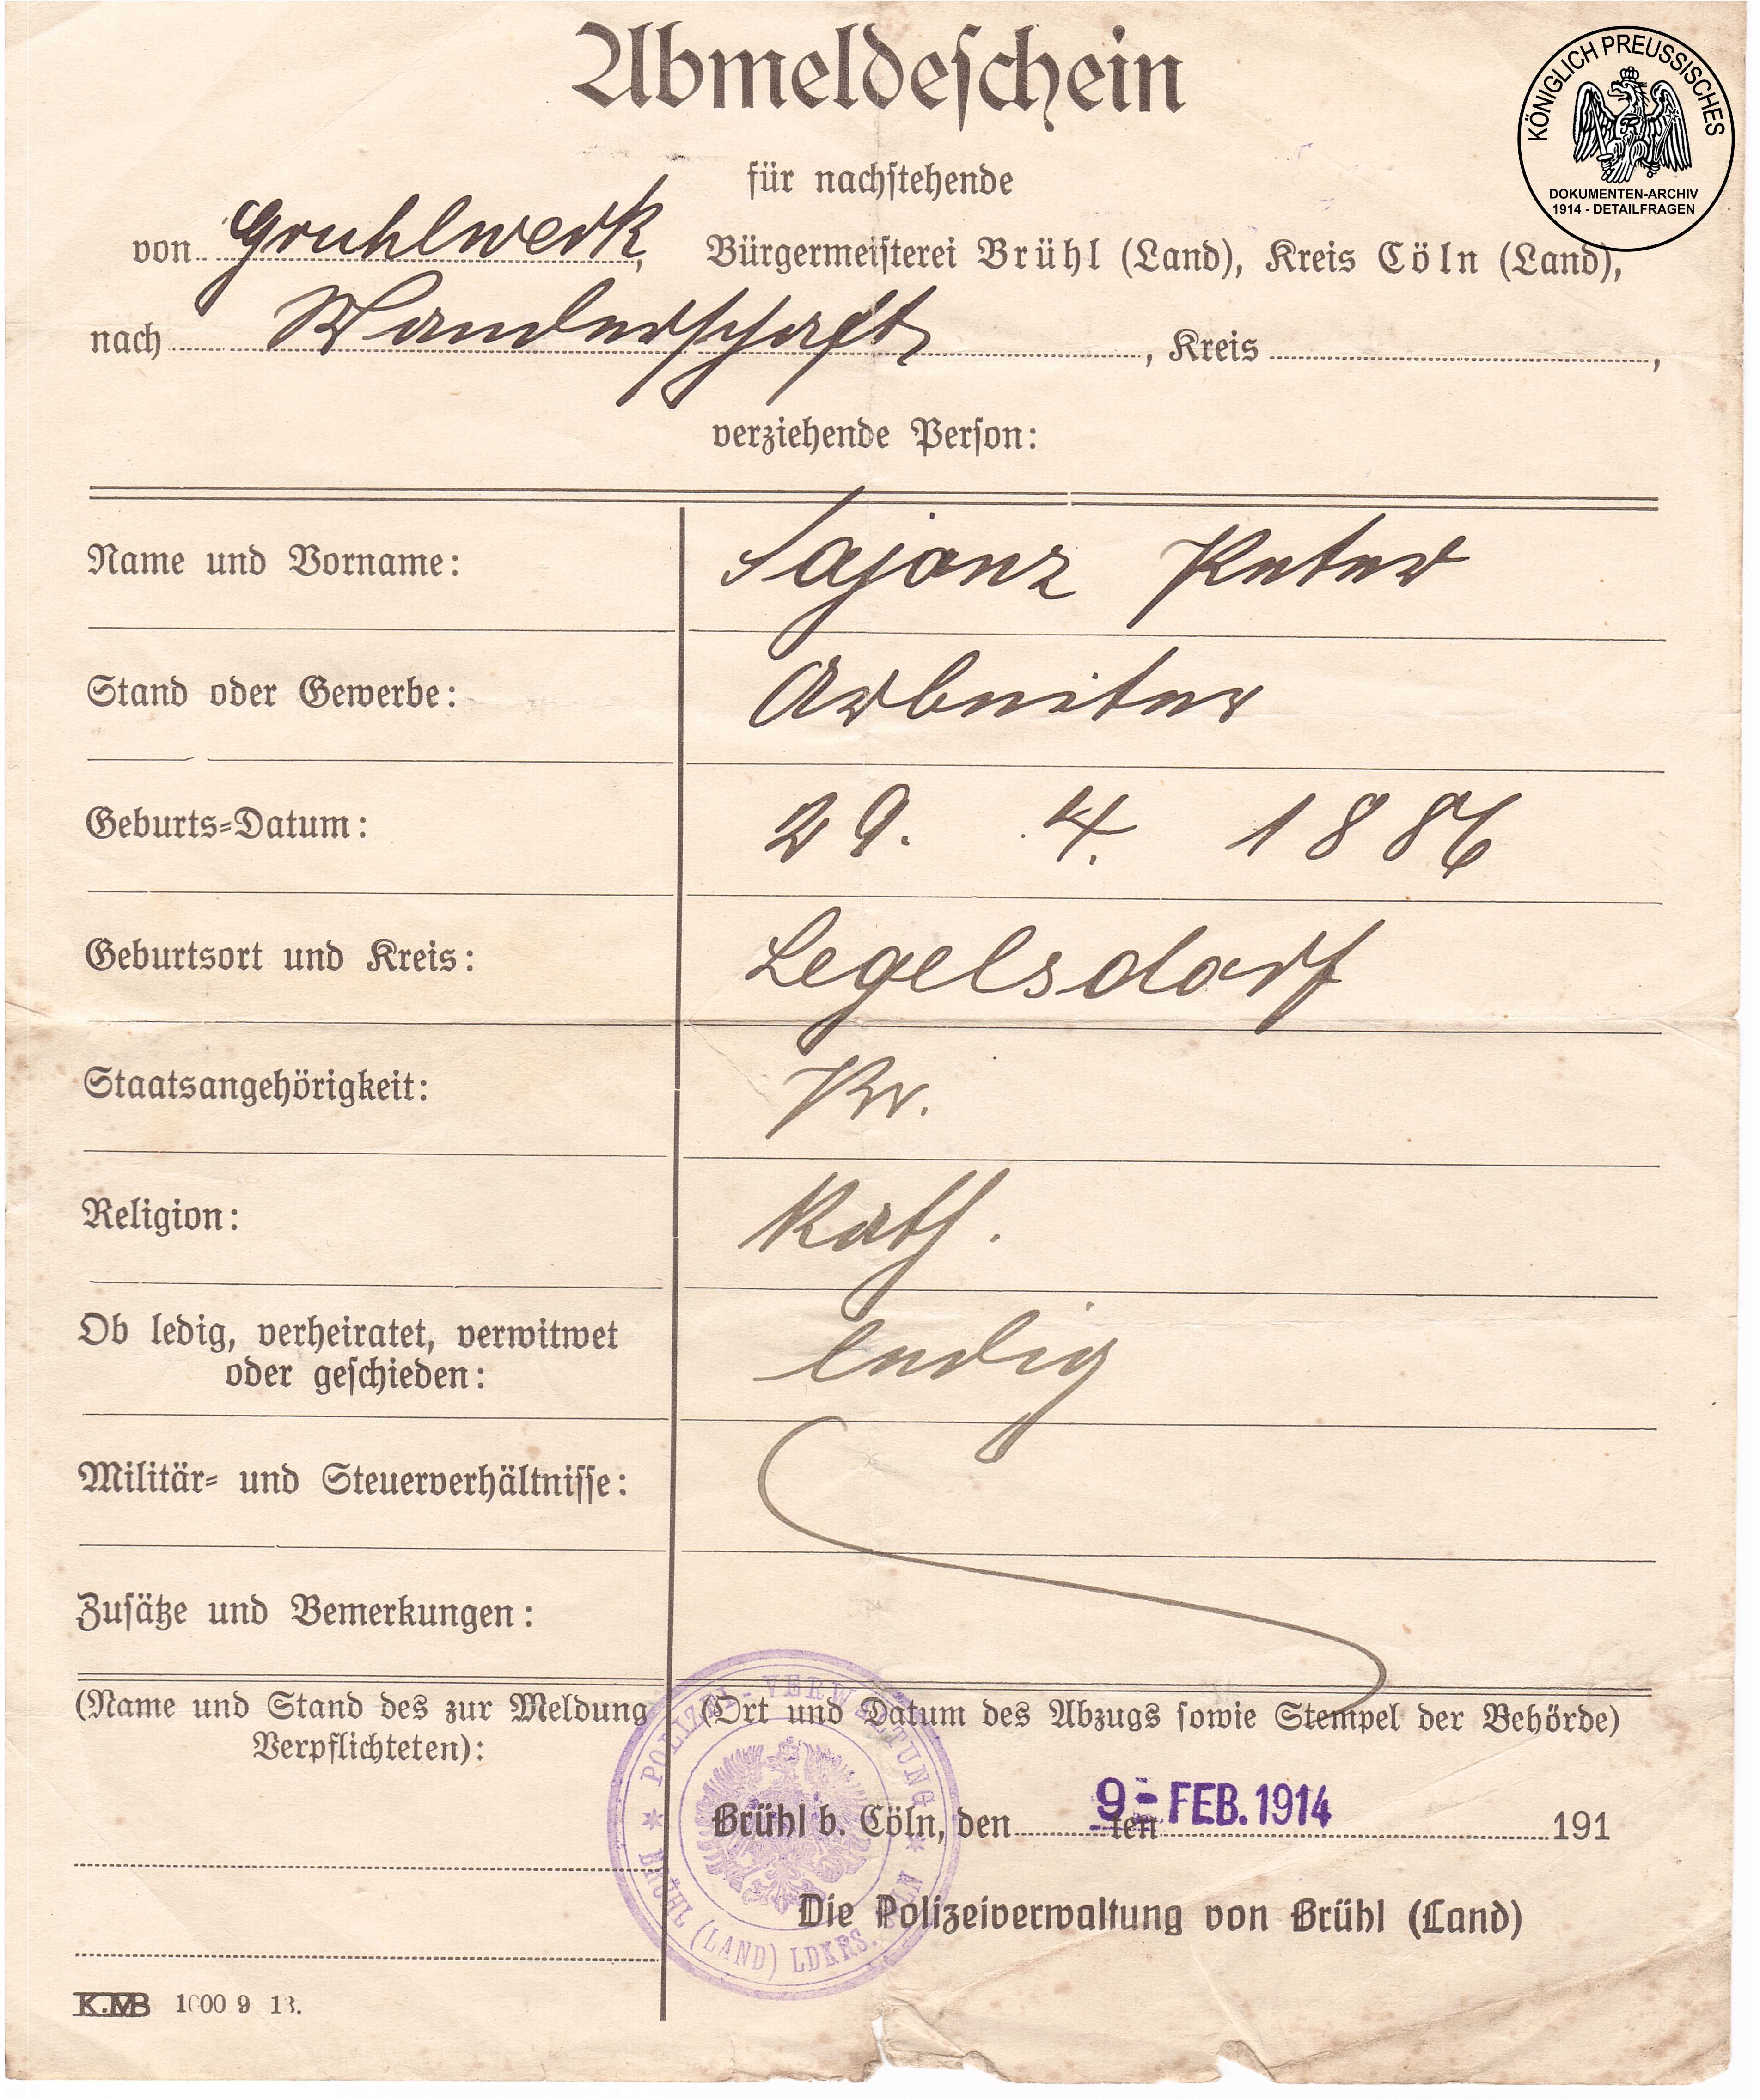 Abmeldeschein
KÖNIGLICH PREUSSISCHES
DOKUMENTEN-ARCHIV
1914 - DETAILFRAGEN
für nachstehende
von Gruhlwerk, Bürgermeisterei Brühl (Land), Kreis Cöln (Land),
nach Wanderschaft, Kreis ,
verziehende Person:
Name und Vorname: Sajonz Peter
Stand oder Gewerbe: Arbeiter
Geburts-Datum: 29. 4. 1886
Geburtsort und Kreis: Legelsdorf
Staatsangehörigkeit: Pr.
Religion: Kath.
Ob ledig, verheiratet, verwitwet
oder geschieden: ledig
Militär- und Steuerverhältnisse:
Zusätze und Bemerkungen:
(Name und Stand des zur Meldung
Verpflichteten):
(Ort und Datum des Abzugs sowie Stempel der Behörde)
POLIZEI-VERWALTUNG
BRÜHL (LAND) LDKRS. CÖLN
Brühl b. Cöln, den 9- ten FEB. 1914 191
Die Polizeiverwaltung von Brühl (Land)
K.MB 1000 9 13.